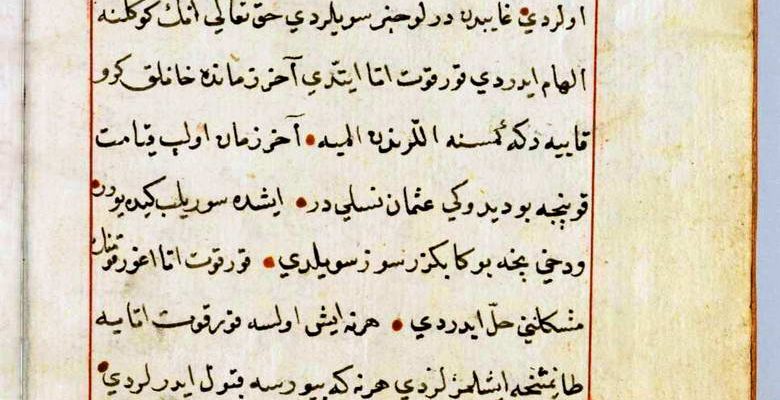 اولردي غايبدن درلو خبر سويلردي حق تعالى انك كوكلنه
الهام ايدردي قورقوت اتا ايتدي آخر زمانده خانلق كرو
قاييه دكه كمسنه اللرندن الميه آخر زمان اولب قيامت
قوپنجه بو ديدوكي عثمان نسلي در ايشده سوريلب كيده يورر
ودخي نچه بوكا بكزر سوز سويلدي قورقوت اتا اغوز قومنك
مشكلنى حل ايدردي هر نه ايش اولسه قورقوت اتايه
طانشمنجه ايشلمزلردي هر نه كه بيورسه قبول ايدرلردي